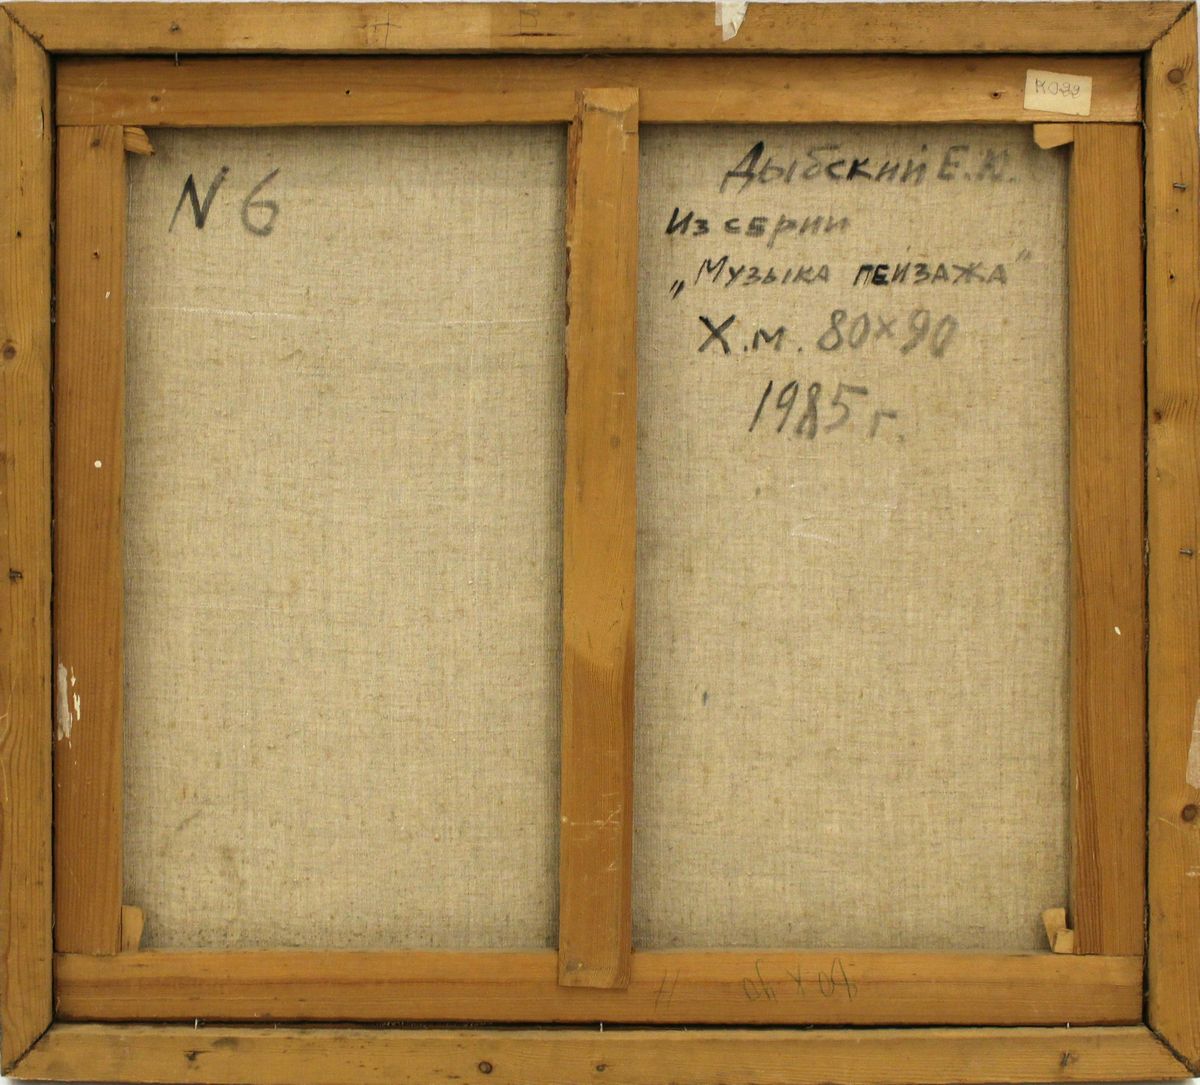 К022
N 6
Дыбский Е.К.
Из серии
„Музыка пейзажа"
Х.м. 80×90
1985 г.